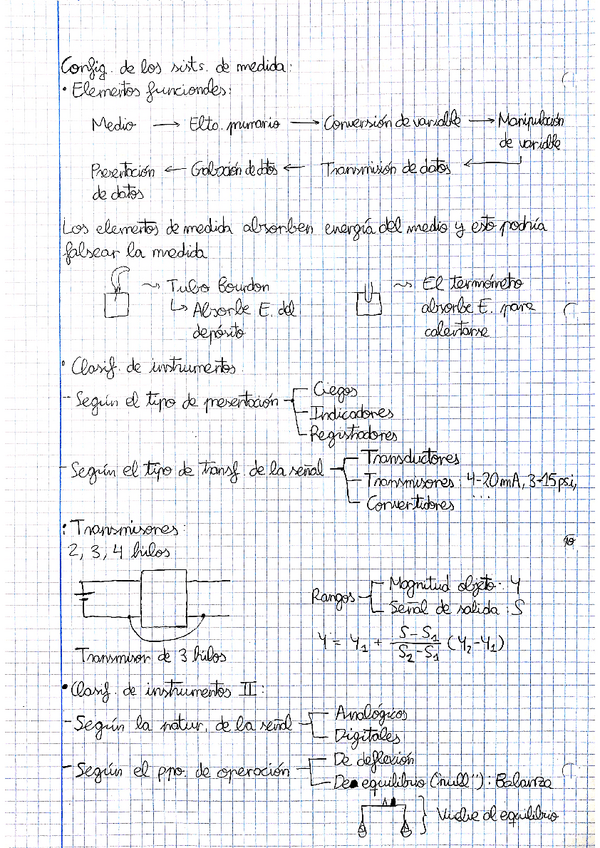 Config. de los sists. de medida:
• Elementos funcionales:
Medio → Elto. primario → Conversión de variable → Manipulación
de variable
Presentación ← Grabación de datos ← Transmisión de datos ←
de datos
Los elementos de medida absorben energía del medio y esto podría
falsear la medida
~ Tubo Bourdon
↳ Absorbe E. del
depósito
~ El termómetro
absorbe E. para
calentarse
• Clasif. de instrumentos
- Según el tipo de presentación
Ciegos
Indicadores
Registradores
- Según el tipo de transf. de la señal
Transductores
Transmisores: 4-20mA, 3-15psi,
...
Convertidores
• Transmisores:
2, 3, 4 hilos
Transmisor de 3 hilos
Rangos
Magnitud objeto: Y
Señal de salida: S
Y = Y₁ + (S-S₁)/(S₂-S₁) (Y₂-Y₁)
• Clasif. de instrumentos II:
- Según la natur. de la señal
Analógicos
Digitales
- Según el ppo. de operación
De deflexión
De equilibrio ("null"): Balanza
} Vuelve al equilibrio